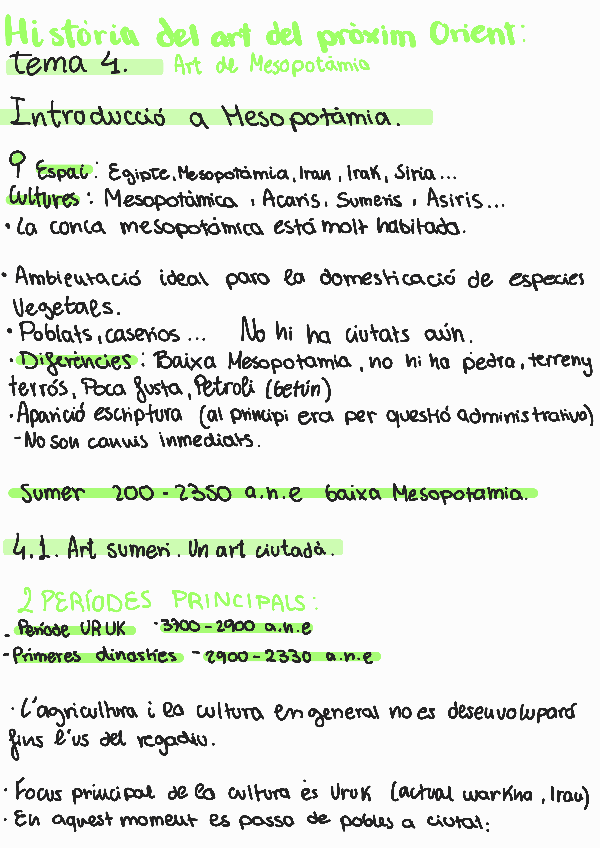 Història del art del pròxim Orient:
tema 4. Art de Mesopotàmia
Introducció a Mesopotàmia.
Espai: Egipte, Mesopotàmia, Iran, Irak, Siria...
Cultures: Mesopotàmica, Acaris, Sumeris, Asiris...
· La conca mesopotàmica está molt habitada.
· Ambientació ideal para la domesticació de especies
Vegetals.
· Poblats, caserios... No hi ha ciutats aún.
· Diferències: Baixa Mesopotamia, no hi ha pedra, terreny
terrós, Poca fusta, Petroli (betún)
· Aparició escriptura (al principi era per questió administrativa)
- No son canvis inmediats.
Sumer 200 - 2350 a.n.e baixa Mesopotamia.
4.1. Art sumeri. Un art ciutadà.
2 PERÍODES PRINCIPALS:
- Període URUK - 3700 - 2900 a.n.e
- Primeres dinasties - 2900 - 2330 a.n.e
· L'agricultura i la cultura en general no es desenvolupará
fins l'us del regadiu.
· Focus principal de la cultura és Uruk (actual warkha, Irau)
· En aquest moment es passa de pobles a ciutat: